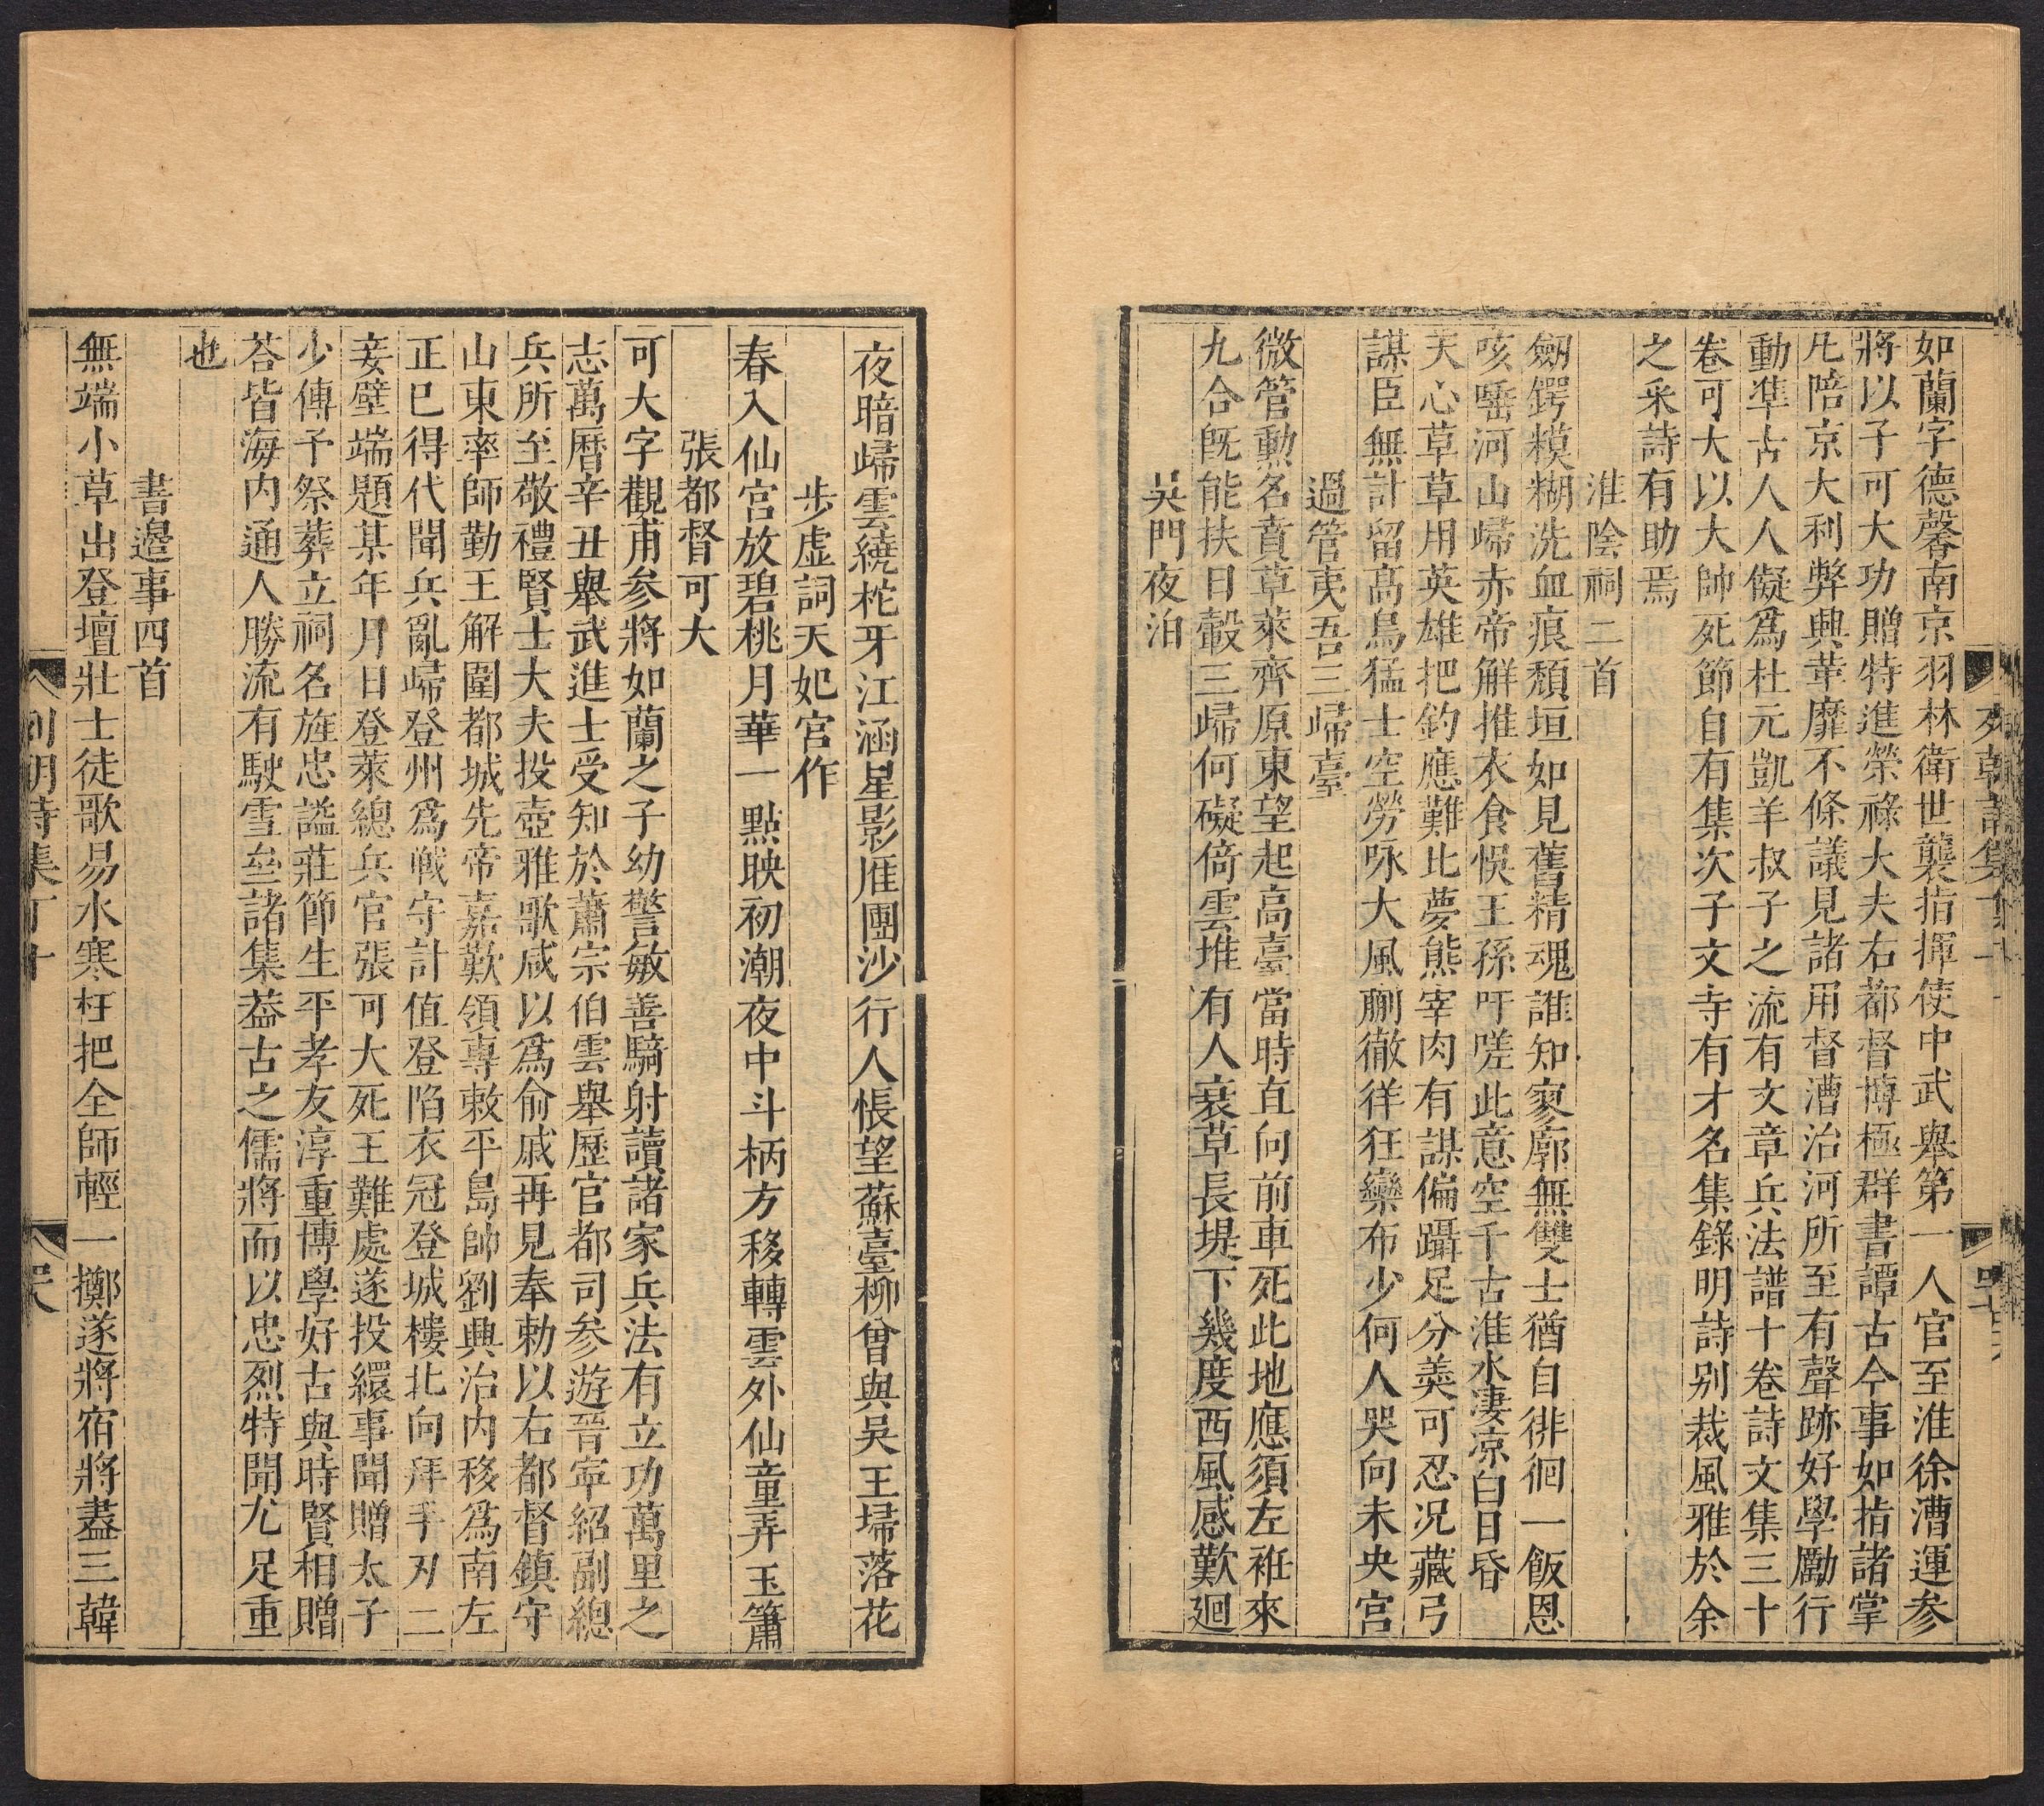 如蘭字德馨南京羽林衛世襲指揮使中武舉第一人官至淮徐漕運參
將以子可大功贈特進榮祿大夫右都督博極群書譚古今事如指諸掌
凡陪京大利弊興革靡不條議見諸用督漕治河所至有聲跡好學勵行
動準古人人儗爲杜元凱羊叔子之流有文章兵法譜十卷詩文集三十
卷可大以大帥死節自有集次子文寺有才名集錄明詩别裁風雅於余
之采詩有助焉
淮陰祠二首
劒鍔糢糊洗血痕頹垣如見舊精魂誰知寥廓無雙士猶自徘徊一飯恩
咳唾河山歸赤帝解推衣食悞王孫吁嗟此意空千古淮水凄凉白日昏
天心草草用英雄把釣應難比夢熊宰肉有謀偏躡足分羹可忍况藏弓
謀臣無計留高鳥猛士空勞咏大風蒯徹徉狂欒布少何人哭向未央宮
過管夷吾三歸臺
微管勲名賁草萊齊原東望起高臺當時直向前車死此地應須左袵來
九合旣能扶日轂三歸何礙倚雲堆有人衰草長堤下幾度西風感歎廻
吳門夜泊
夜暗歸雲繞柁牙江涵星影雁團沙行人悵望蘇臺柳曾與吳王埽落花
步虛詞天妃宮作
春入仙宮放碧桃月華一點映初潮夜中斗柄方移轉雲外仙童弄玉簫
張都督可大
可大字觀甫參將如蘭之子幼警敏善騎射讀諸家兵法有立功萬里之
志萬曆辛丑舉武進士受知於蕭宗伯雲舉歷官都司參遊晉寧紹副總
兵所至敬禮賢士大夫投壺雅歌咸以爲俞戚再見奉勅以右都督鎮守
山東率師勤王解圍都城先帝嘉歎領專敕平島帥劉興治内移爲南左
正已得代聞兵亂歸登州爲戰守計值登陷衣冠登城樓北向拜手刃二
妾壁端題某年月日登萊總兵官張可大死王難處遂投繯事聞贈太子
少傅予祭葬立祠名旌忠謚莊節生平孝友淳重博學好古與時賢相贈
荅皆海内通人勝流有駛雪壘諸集葢古之儒將而以忠烈特聞尤足重
也
書邉事四首
無端小草出登壇壯士徒歌易水寒枉把全師輕一擲遂將宿將盡三韓